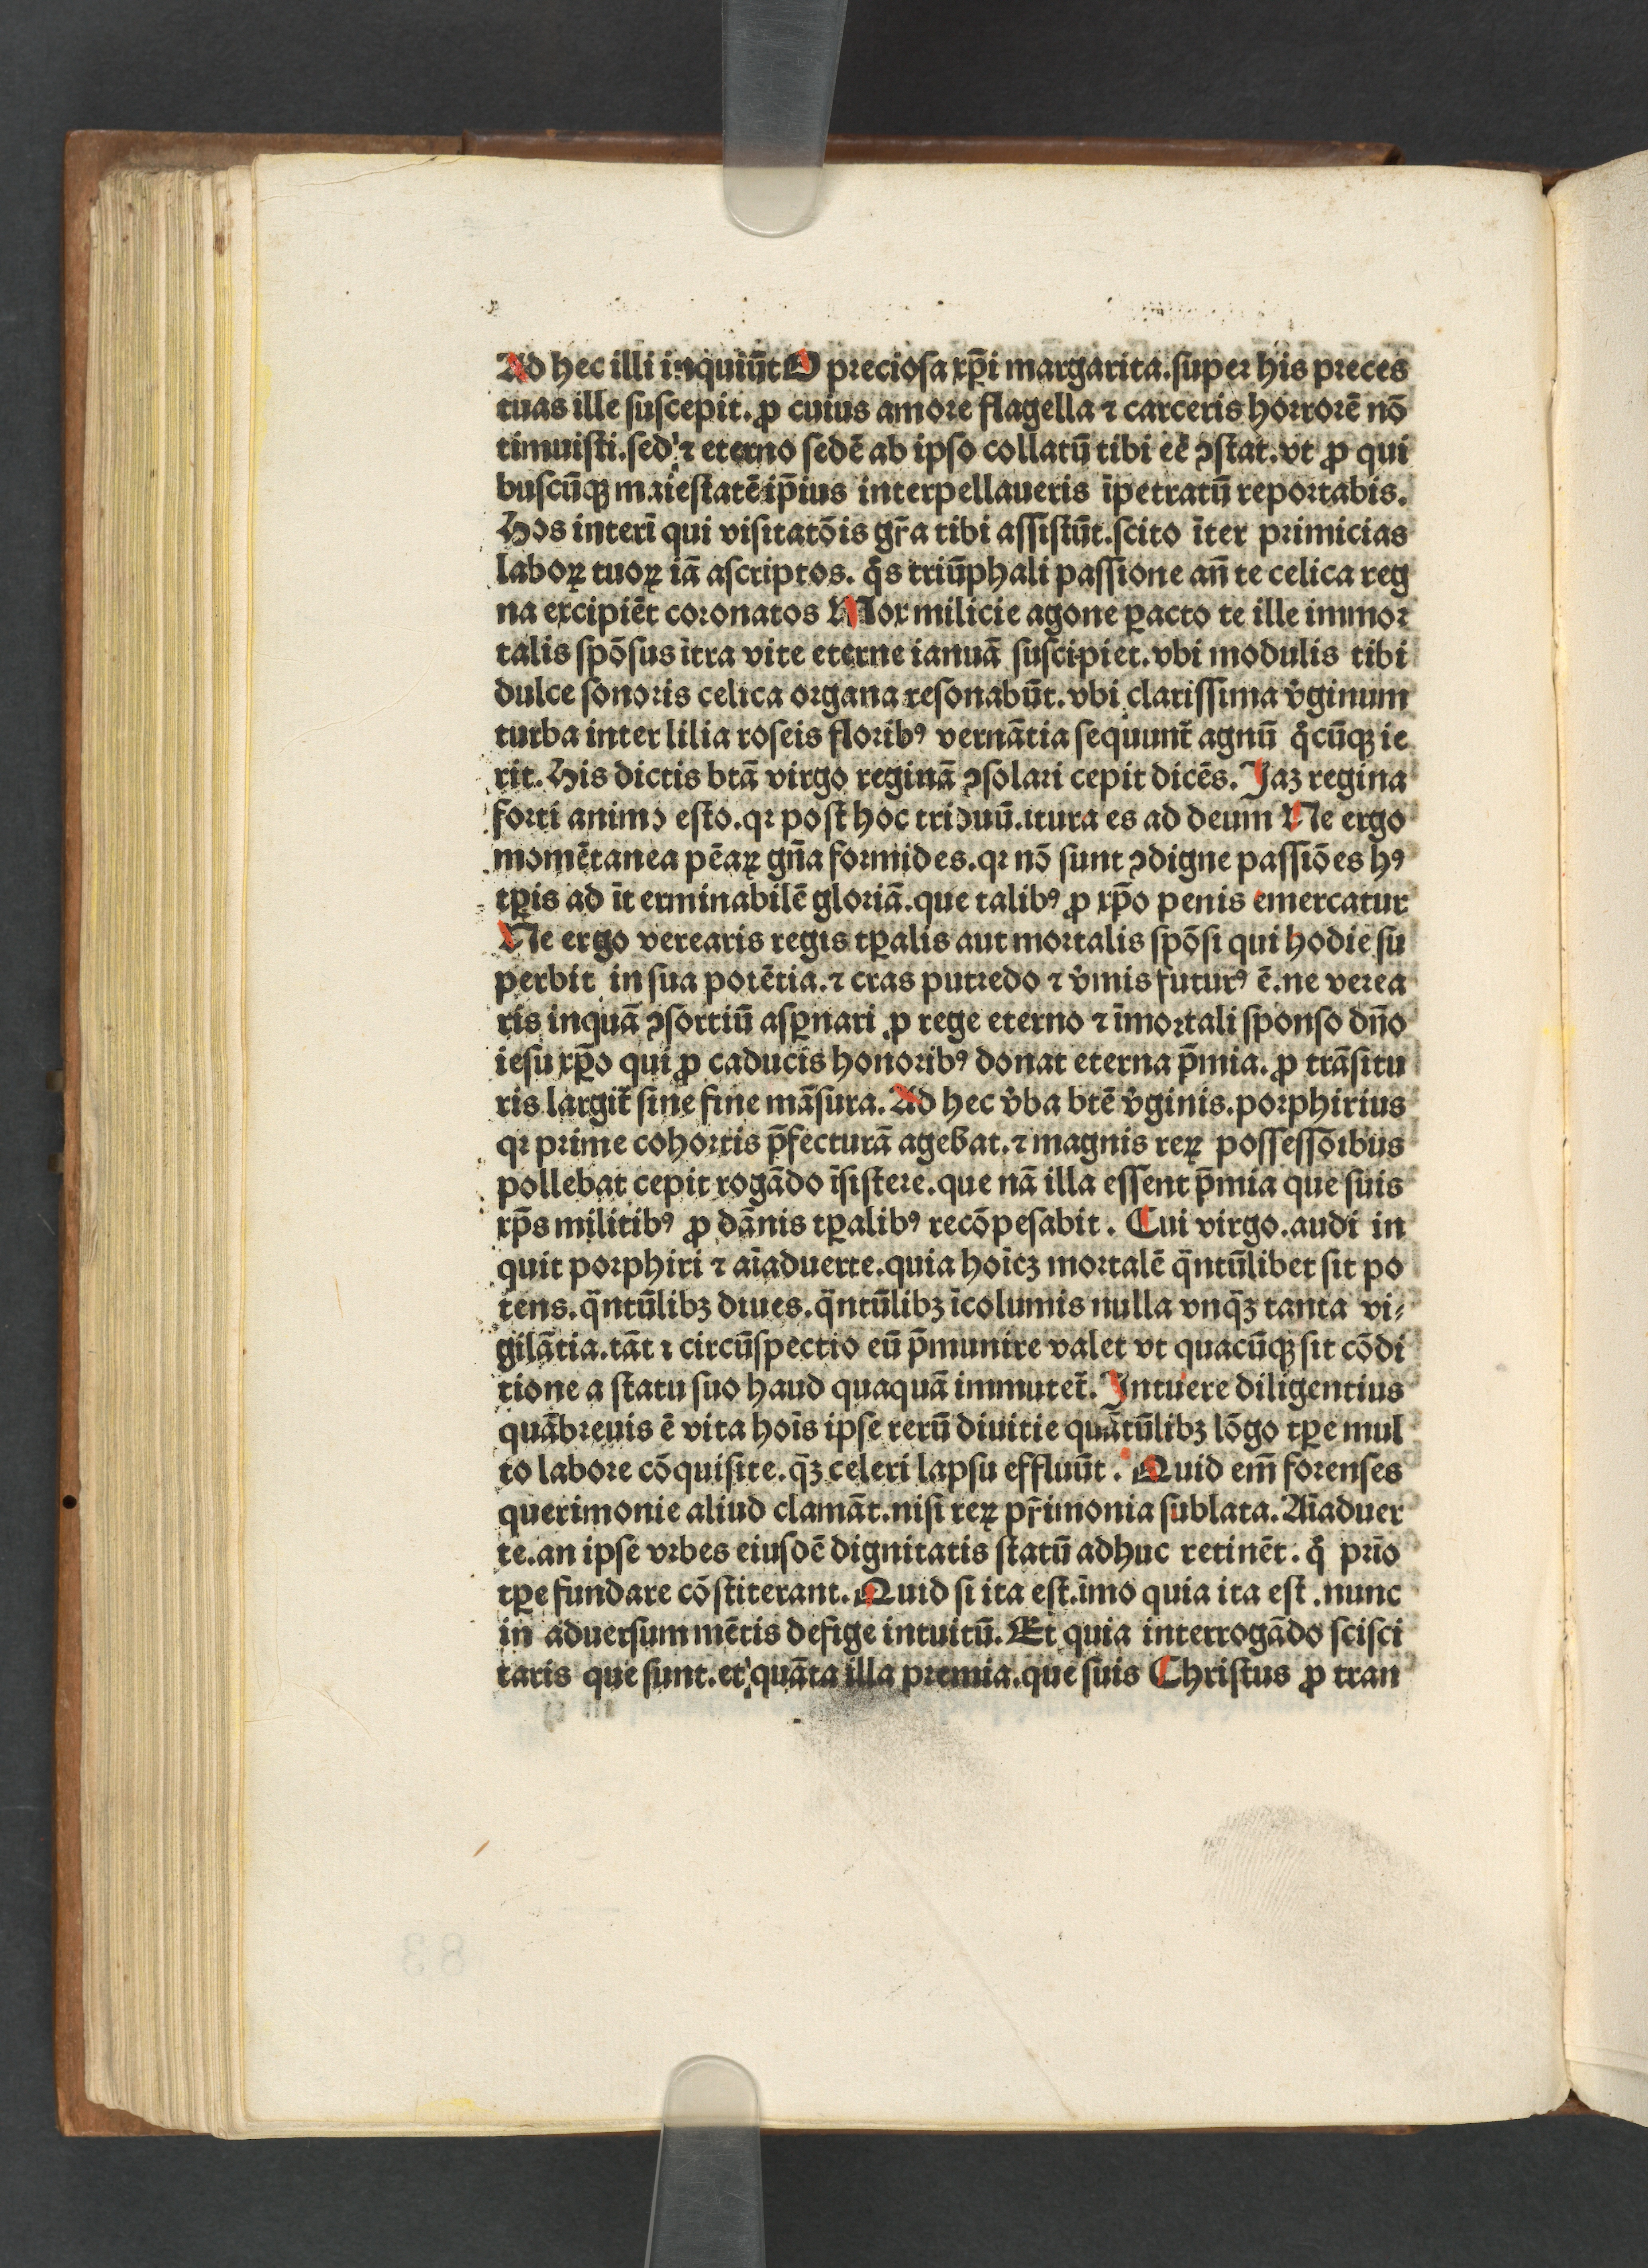 Ad hec illi inquiūt O preciosa xp̄i margarita.super his preces
tuas ille suscepit.ꝓ cuius amore flagella ⁊ carceris horrorē nō
timuisti.sed ⁊ eterno sedē ab ipso collatū tibi eē ꝯstat.vt ꝓ qui
buscūqꝫ maiestatē ip̄ius interpellaueris īpetratū reportabis.
Hos interī qui visitatōis gr̄a tibi assistūt.scito īter primicias
laboꝝ tuoꝝ iā ascriptos. qͦs triūphali passione an̄ te celica reg
na excipiēt coronatos Mox milicie agone ꝑacto te ille immor
talis spōsus ītra vite eterne ianuā suscipiet.vbi modulis tibi
dulce sonoris celica organa resonabūt.vbi clarissima v̓ginum
turba inter lilia roseis floribꝰ vernātia sequunt̄ agnū qͦcūqꝫ ie
rit. His dictis btā virgo reginā ꝯsolari cepit dicēs. Jaꝫ regina
forti animo esto.qꝛ post hoc triduū.itura es ad deum Ne ergo
momētanea pēaꝝ gn̄a formides.qꝛ nō sunt ꝯdigne passiōes hꝰ
tꝑis ad īt erminabilē gloriā.que talibꝰ ꝓ xp̄o penis emercatur
Ne ergo verearis regis tꝑalis aut mortalis spōsi qui hodie su
perbit in sua potētia.⁊ cras putredo ⁊ v̓mis futurꝰ ē.ne verea
ris inquā ꝯsortiū asꝑnari ꝓ rege eterno ⁊ īmortali sponso dn̄o
iesu xp̄o qui ꝓ caducis honoribꝰ donat eterna p̄mia. ꝓ trāsitu
ris largit̄ sine fine māsura. Ad hec v̓ba btē v̓ginis.porphirius
qꝛ prime cohortis p̄fecturā agebat.⁊ magnis reꝝ possessōibus
pollebat cepit rogādo īsistere.que nā illa essent p̄mia que suis
xp̄s militibꝰ ꝓ dānis tꝑalibꝰ recōpesabit. Cui virgo.audi in
quit porphiri ⁊ aīaduerte.quia hoīēꝫ mortalē q̄ntūlibet sit po
tens.q̄ntūlibꝫ diues.q̄ntūlibꝫ īcolumis nulla vnq̄ꝫ tanta vi⸗
gilātia.tāt ı circūspectio eū p̄munire valet vt quacūqꝫ sit cōdi
tione a statu suo haud quaquā immutet̄. Intuere diligentius
quābreuis ē vita hoīs ipse rerū diuitie quātūlibꝫ lōgo tꝑe mul
to labore cōquisite.q̄ꝫ celeri lapsu effluūt. Quid em̄ forenses
querimonie aliud clamāt.nisi reꝝ pr̄imonia sublata. Aīaduer
te.an ipse vrbes eiusdē dignitatis statū adhuc retinēt. qͦ prīo
tꝑe fundare cōstiterant. Quid si ita est.īmo quia ita est .nunc
in aduersum mētis defige intuitū. Et quia interrogādo scisci
taris que sunt.et quāta illa premia.que suis Christus ꝓ tran